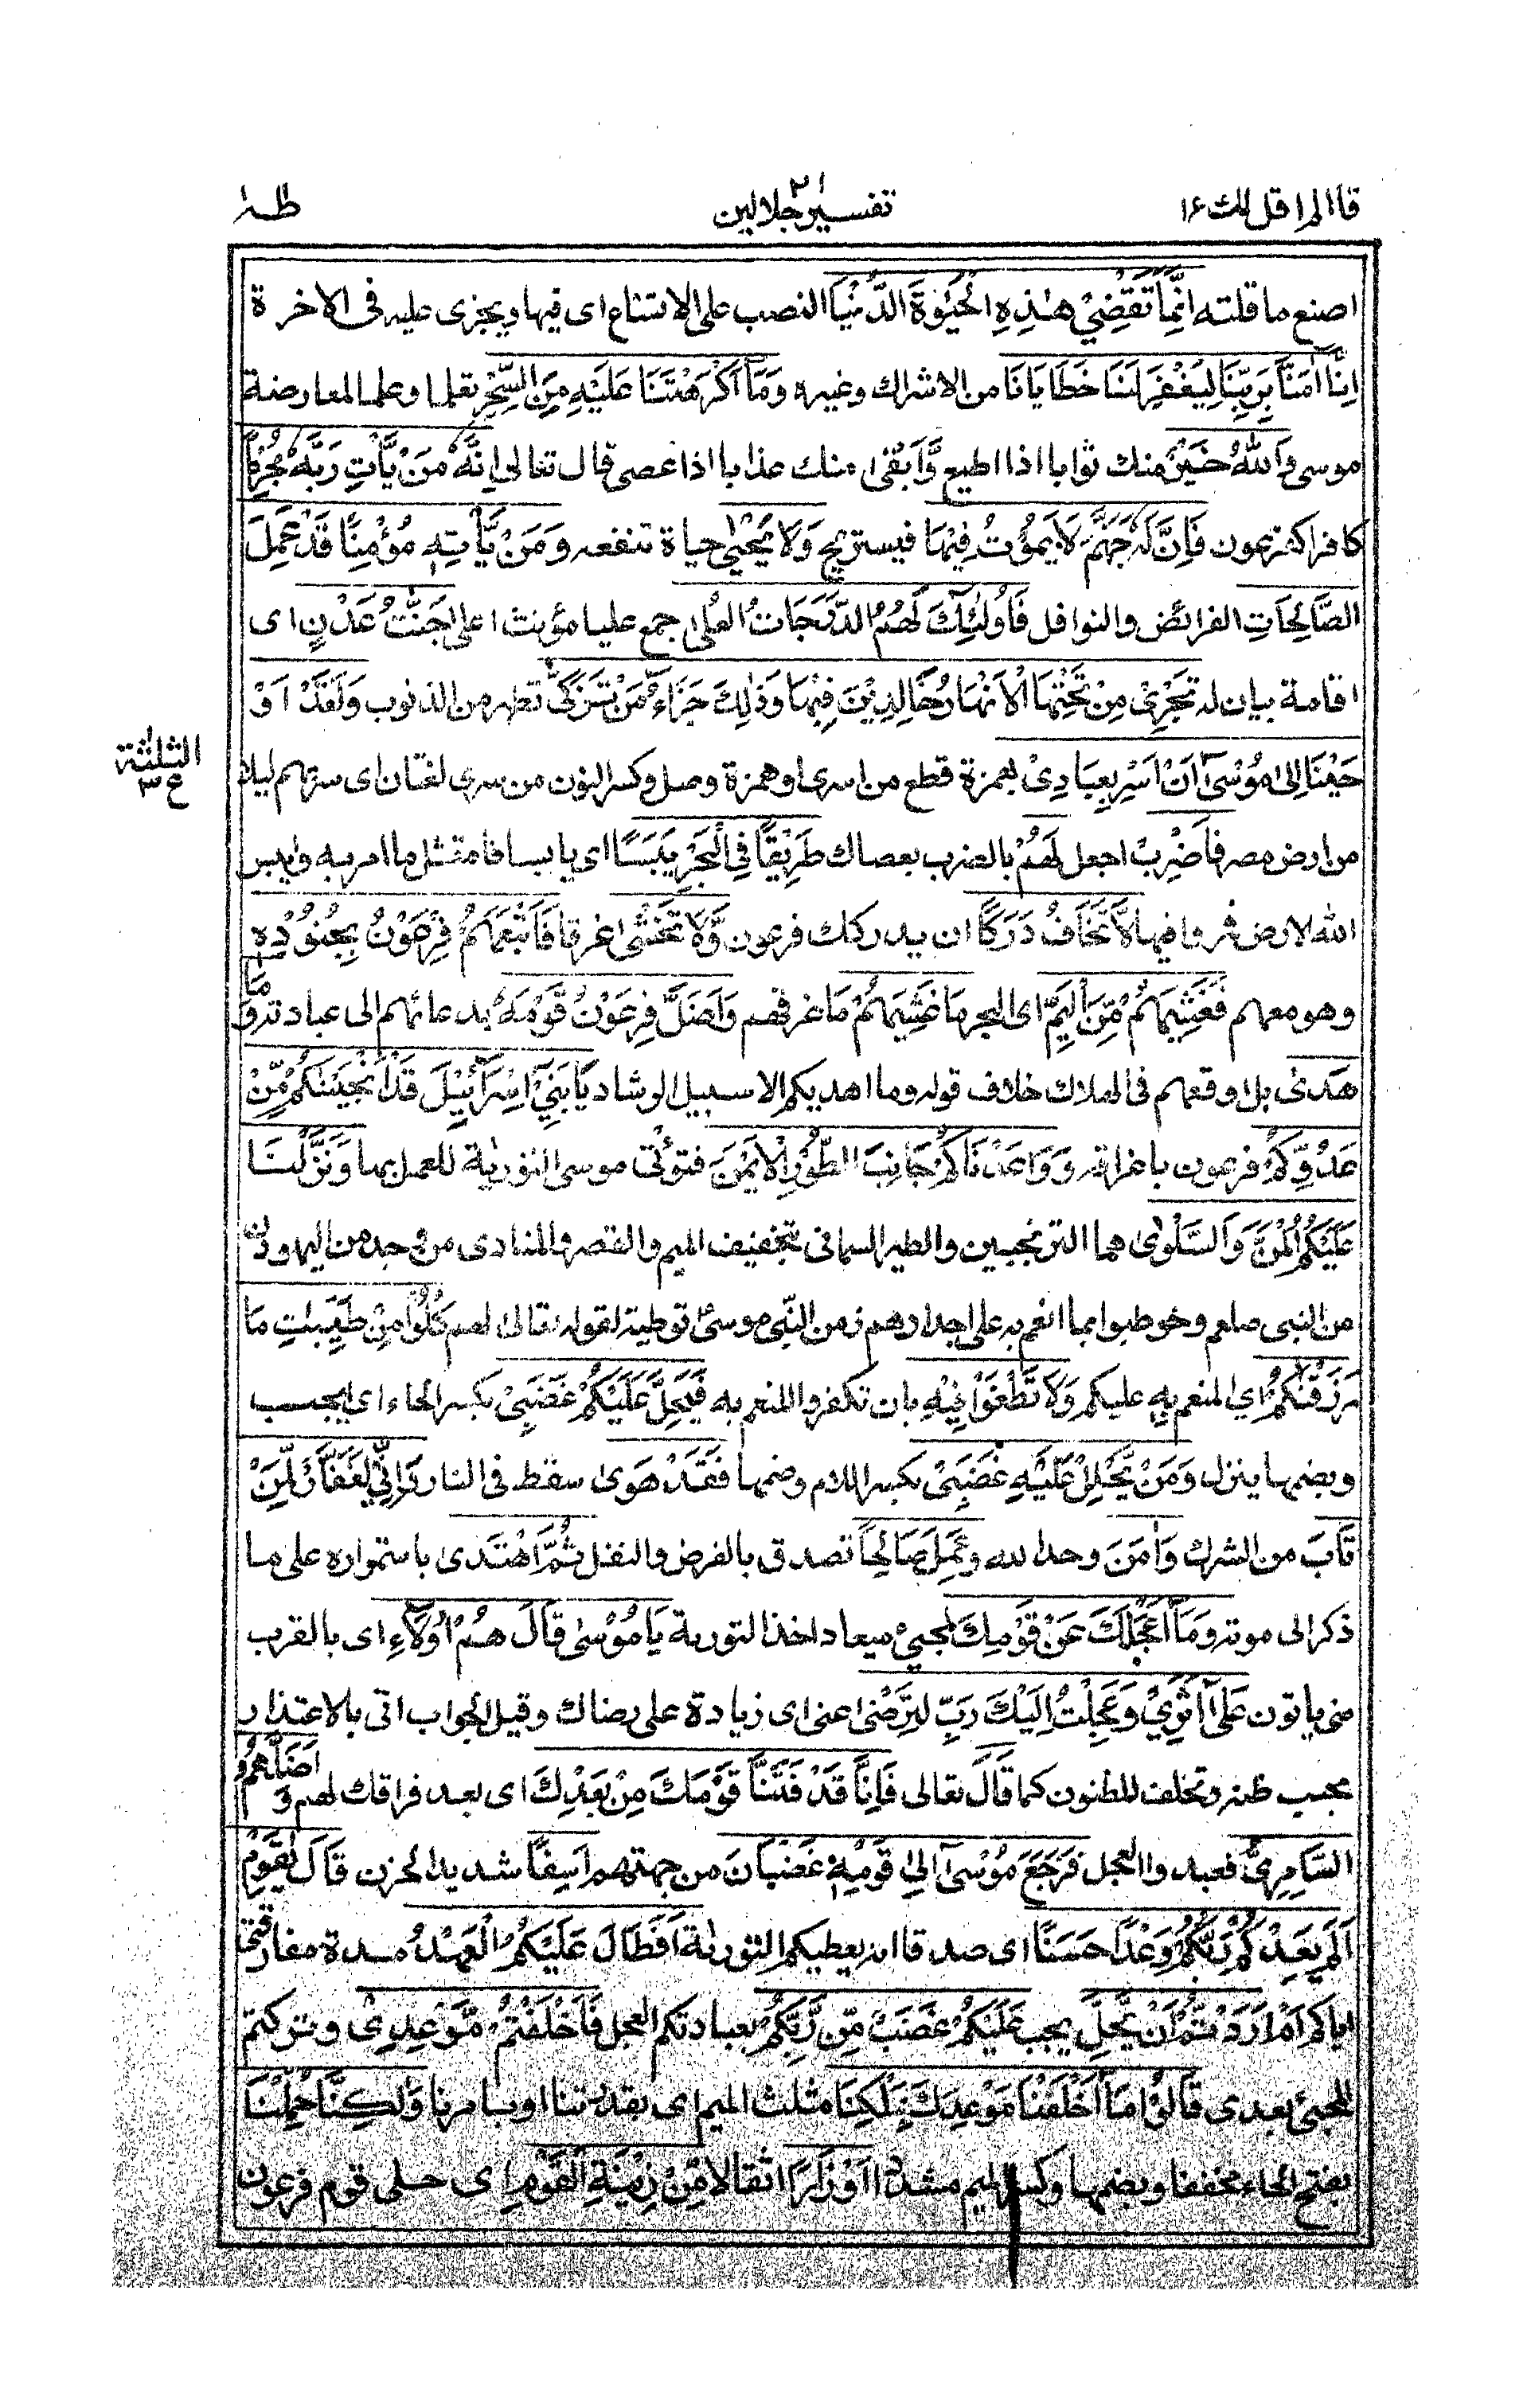 قال الم اقل لك ١٦
تفسير جلالين
٢١
طٰهٰ
اصنع ما قلته اِنَّمَا تَقْضِيْ هٰذِهِ الْحَيٰوةَ الدُّنْيَا النصب على الاتساع اى فيها ويجزى عليه فى الاخرة
اِنَّا اٰمَنَّا بِرَبِّنَا لِيَغْفِرَ لَنَا خَطَايَانَا من الاشراك وغيره وَمَا اَكْرَهْتَنَا عَلَيْهِ مِنَ السِّحْرِ تعلما وعملا لمعارضة
موسى وَاللّٰهُ خَيْرٌ منك ثوابا اذا اطيع وَّاَبْقٰى منك عذابا اذا عصى قال تعالى اِنَّهٗ مَنْ يَّاْتِ رَبَّهٗ مُجْرِمًا
كافرا كفرعون فَاِنَّ لَهٗ جَهَنَّمَ لَا يَمُوْتُ فِيْهَا فيستريح وَلَا يَحْيٰى حياة تنفعه وَمَنْ يَّاْتِهٖ مُؤْمِنًا قَدْ عَمِلَ
الصَّالِحَاتِ الفرائض والنوافل فَاُولٰٓئِكَ لَهُمُ الدَّرَجَاتُ الْعُلٰى جمع عليا مؤنث اعلى جَنّٰتُ عَدْنٍ اى
اقامة بيان له تَجْرِيْ مِنْ تَحْتِهَا الْاَنْهَارُ خَالِدِيْنَ فِيْهَا وَذٰلِكَ جَزَاءُ مَنْ تَزَكّٰى تطهر من الذنوب وَلَقَدْ اَوْ
حَيْنَا اِلٰى مُوْسٰٓى اَنْ اَسْرِ بِعِبَادِيْ بهمزة قطع من اسرى او همزة وصل وكسر النون من سرى لغتان اى سر بهم ليلا
الثلثة
ع ٣
من ارض مصر فَاضْرِبْ اجعل لَهُمْ بالضرب بعصاك طَرِيْقًا فِى الْبَحْرِ يَبَسًا اى يابسا فامتثل ما امر به وايبس
الله الارض فمروا فيها لَا تَخَافُ دَرَكًا ان يدركك فرعون وَّلَا تَخْشٰى غرقا فَاَتْبَعَهُمْ فِرْعَوْنُ بِجُنُوْدِهٖ
وهو معهم فَغَشِيَهُمْ مِّنَ الْيَمِّ اى البحر مَا غَشِيَهُمْ فاغرقهم وَاَضَلَّ فِرْعَوْنُ قَوْمَهٗ بدعائهم الى عبادته وَمَا
هَدٰى بل اوقعهم فى الهلاك خلاف قوله وما اهديكم الا سبيل الرشاد يَا بَنِيْٓ اِسْرَآئِيْلَ قَدْ اَنْجَيْنٰكُمْ مِّنْ
عَدُوِّكُمْ فرعون باغراقه وَوَاعَدْنَاكُمْ جَانِبَ الطُّوْرِ الْاَيْمَنَ فنؤتى موسى التورىة للعمل بها وَنَزَّلْنَا
عَلَيْكُمُ الْمَنَّ وَالسَّلْوٰى هما الترنجبين والطير السمانى بتخفيف الميم والقصر والمنادى من وجد من اليهود زمن
من النبى صلعم وخوطبوا بما انعم به على اجدادهم زمن النبى موسى توطية لقوله تعالى لهم كُلُوْا مِنْ طَيِّبٰتِ مَا
رَزَقْنٰكُمْ اي المنعم به عليكم وَلَا تَطْغَوْا فِيْهِ بان تكفروا المنعم به فَيَحِلَّ عَلَيْكُمْ غَضَبِيْ بكسر الحاء اى يجب
وبضمها ينزل وَمَنْ يَّحْلِلْ عَلَيْهِ غَضَبِيْ بكسر اللام وضمها فَقَدْ هَوٰى سقط فى النار وَاِنِّيْ لَغَفَّارٌ لِّمَنْ
تَابَ من الشرك وَاٰمَنَ وحد الله وَعَمِلَ صَالِحًا تصدق بالفرض والنفل ثُمَّ اهْتَدٰى باستمراره على ما
ذكر الى موته وَمَا اَعْجَلَكَ عَنْ قَوْمِكَ لمجئ ميعاد اخذ التورىة يَا مُوْسٰى قَالَ هُمْ اُولَاءِ اى بالقرب
منى ياتون عَلٰٓى اَثَرِيْ وَعَجِلْتُ اِلَيْكَ رَبِّ لِتَرْضٰى عنى اى زيادة على رضاك وقبل الجواب اتى بالاعتذار
بحسب ظنه وتخلف المظنون كما قَالَ تعالى فَاِنَّا قَدْ فَتَنَّا قَوْمَكَ مِنْ بَعْدِكَ اى بعد فراقك لهم وَاَضَلَّهُمُ
السَّامِرِىُّ فعبدوا العجل فَرَجَعَ مُوْسٰٓى اِلٰى قَوْمِهٖ غَضْبَانَ من جهتهم اَسِفًا شديد الحزن قَالَ يٰقَوْمِ
اَلَمْ يَعِدْكُمْ رَبُّكُمْ وَعْدًا حَسَنًا اى صدقا انه يعطيكم التورىة اَفَطَالَ عَلَيْكُمُ الْعَهْدُ مدة مفارقتى
اياكم اَمْ اَرَدْتُّمْ اَنْ يَّحِلَّ يجب عَلَيْكُمْ غَضَبٌ مِّنْ رَّبِّكُمْ بعبادتكم العجل فَاَخْلَفْتُمْ مَّوْعِدِىْ وتركتم
المجئ بعدى قَالُوْا مَا اَخْلَفْنَا مَوْعِدَكَ بِمَلْكِنَا مثلث الميم اى بقدرتنا او بامرنا وَلٰكِنَّا حُمِّلْنَا
بفتح الحاء مخففا وبضمها وكسر الميم مشددا اَوْزَارًا اثقالا مِّنْ زِيْنَةِ الْقَوْمِ اى حلى قوم فرعون